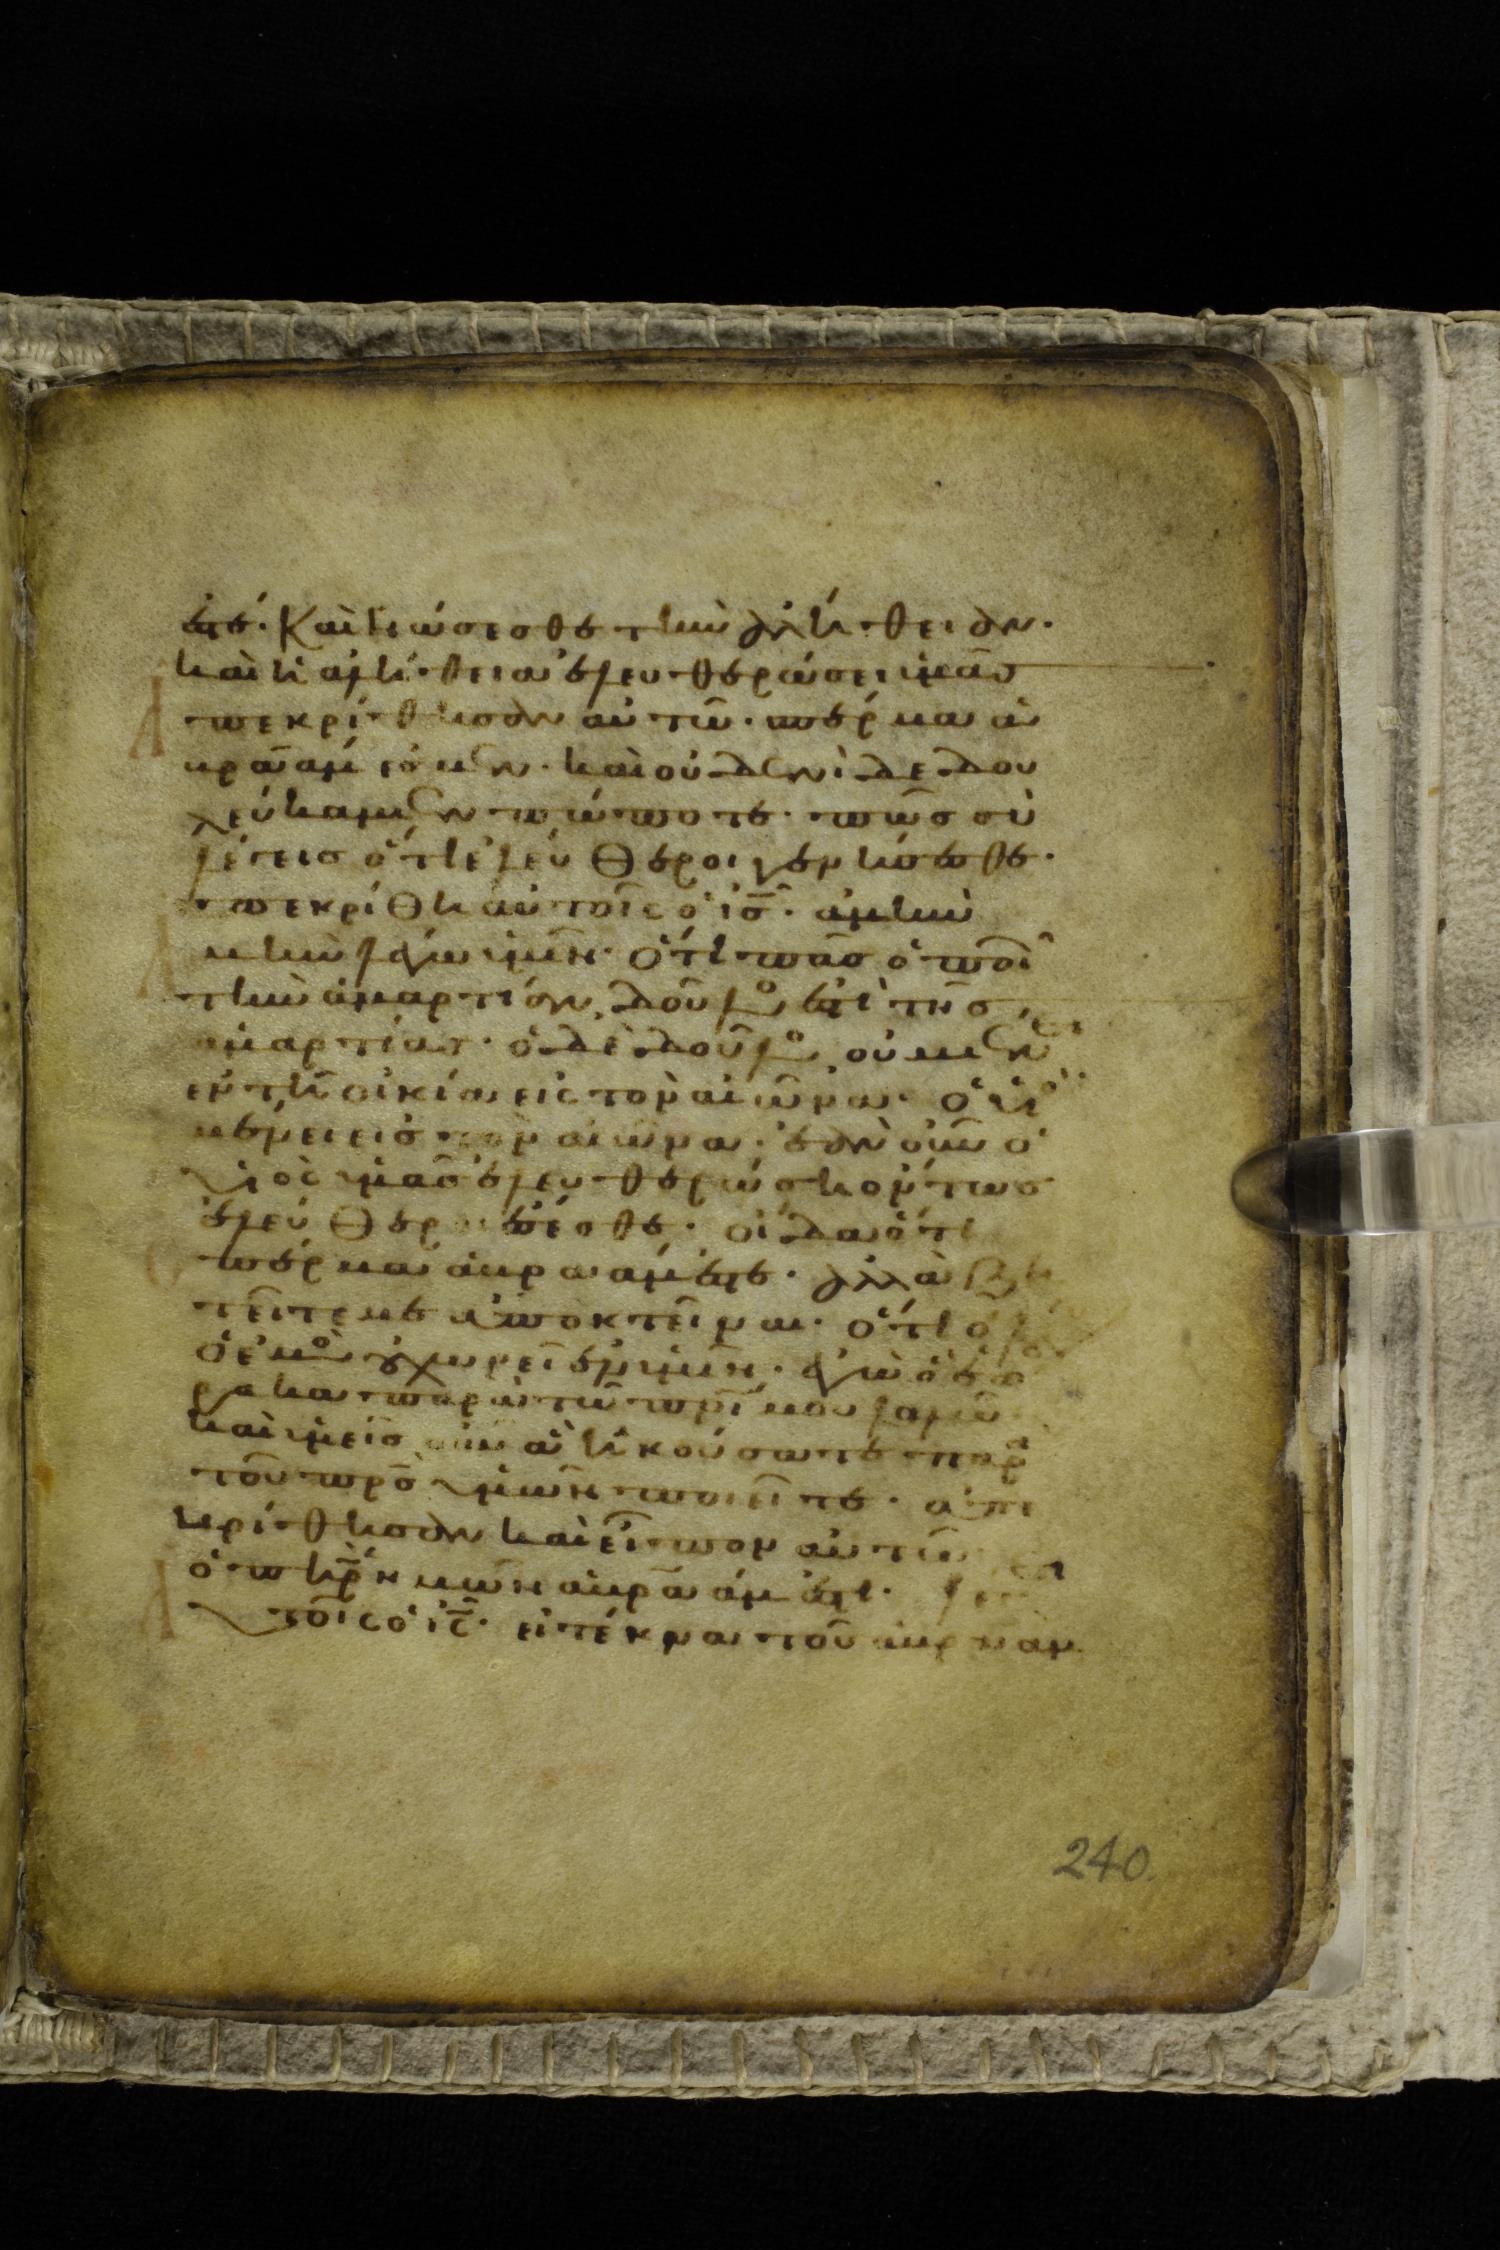 ἐστέ· Καὶ γνώσεσθε τὴν ἀλήθειαν·
καὶ ἡ ἀλήθεια ἐλευθερώσει ὑμᾶς
Ἀπεκρίθησαν αὐτῶ· σπέρμα ἀ
βραάμ ἐσμεν· καὶ οὐδενὶ δεδου
λεύκαμεν πώποτε· πῶς σὺ
λέγεις ὅτι ἐλεύθεροι γενήσεσθε·
Ἀπεκρίθη αὐτοῖς ὁ ις· ἀμὴν
ἀμὴν λέγω ὑμῖν· ὅτι πᾶς ὁ ποι
τὴν ἁμαρτίαν, δοῦλο ἐστὶ τῆς
ἁμαρτίας· ὁ δὲ δοῦλο οὐ μεν
ἐν τῆ οἰκία εἰς τὸν αἰῶνα· ὁ υἱο
μένει εἰς τὸν αἰῶνα· ἐὰν οὖν ὁ
υἱὸς ὑμᾶς ἐλευθερώση ὄντως
ἐλεύθεροι ἔσεσθε· οἶδα ὅτι
σπέρμα ἀβραάμ ἐστε· ἀλλὰ ζη
τεῖτε με ἀποκτεῖναι· ὅτι ὁ λο
ὁ ἐμὸ οὐ χωρεῖ ἐν ὑμῖν· ἐγὼ ὃ ἑώ
ρακα παρὰ τῶ πρι μου λαλῶ
καὶ ὑμεῖς οὖν ἃ ἠκούσατε παρ
τοῦ πρς ὑμῶν ποιεῖτε· ἀπε
κρίθησαν καὶ εἶπον αὐτῶ
ὁ πηρ ἡμῶν ἀβραάμ ἐστι· λέγει
Αὐτοῖς ὁ ις· εἰ τέκνα τοῦ ἀβραὰμ
240